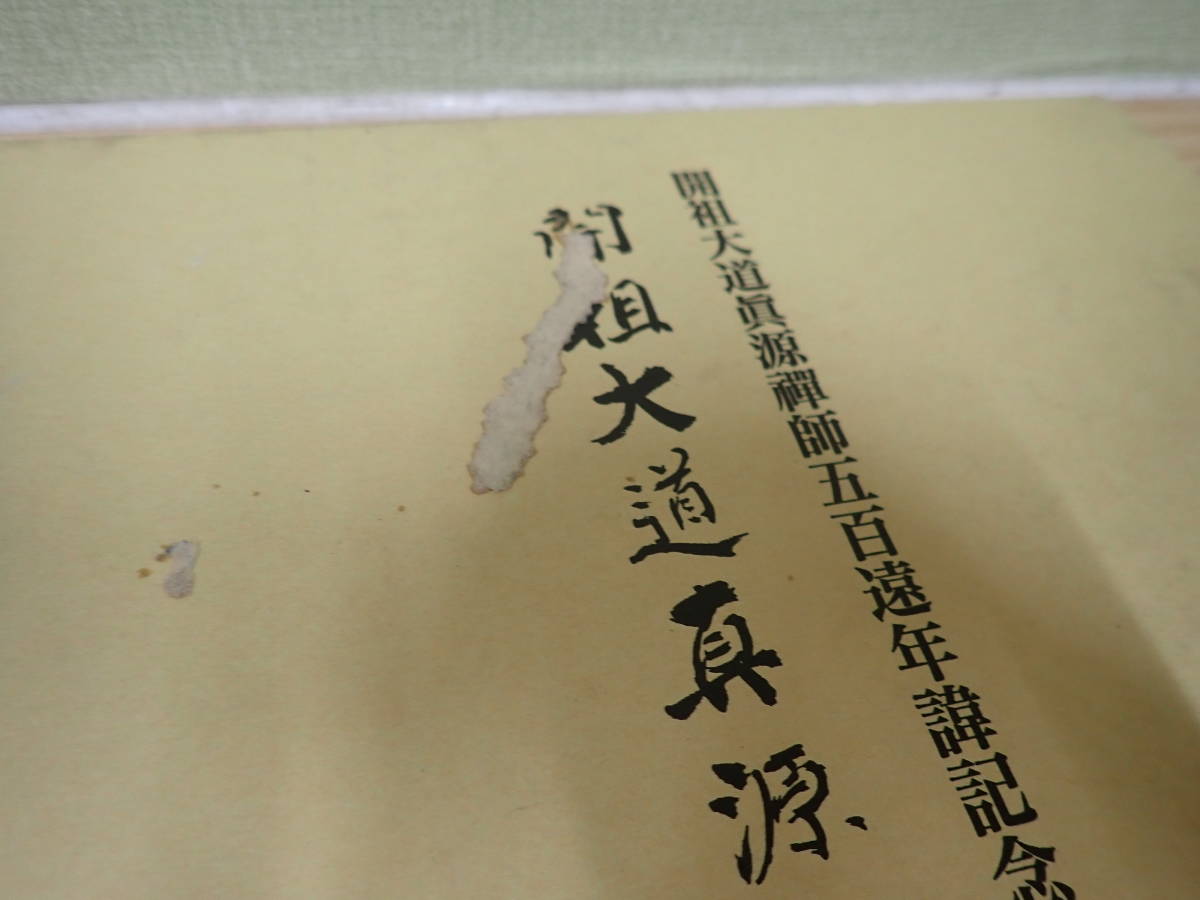 開祖大道眞源禪師五百遠年諱記念
開祖大道真源